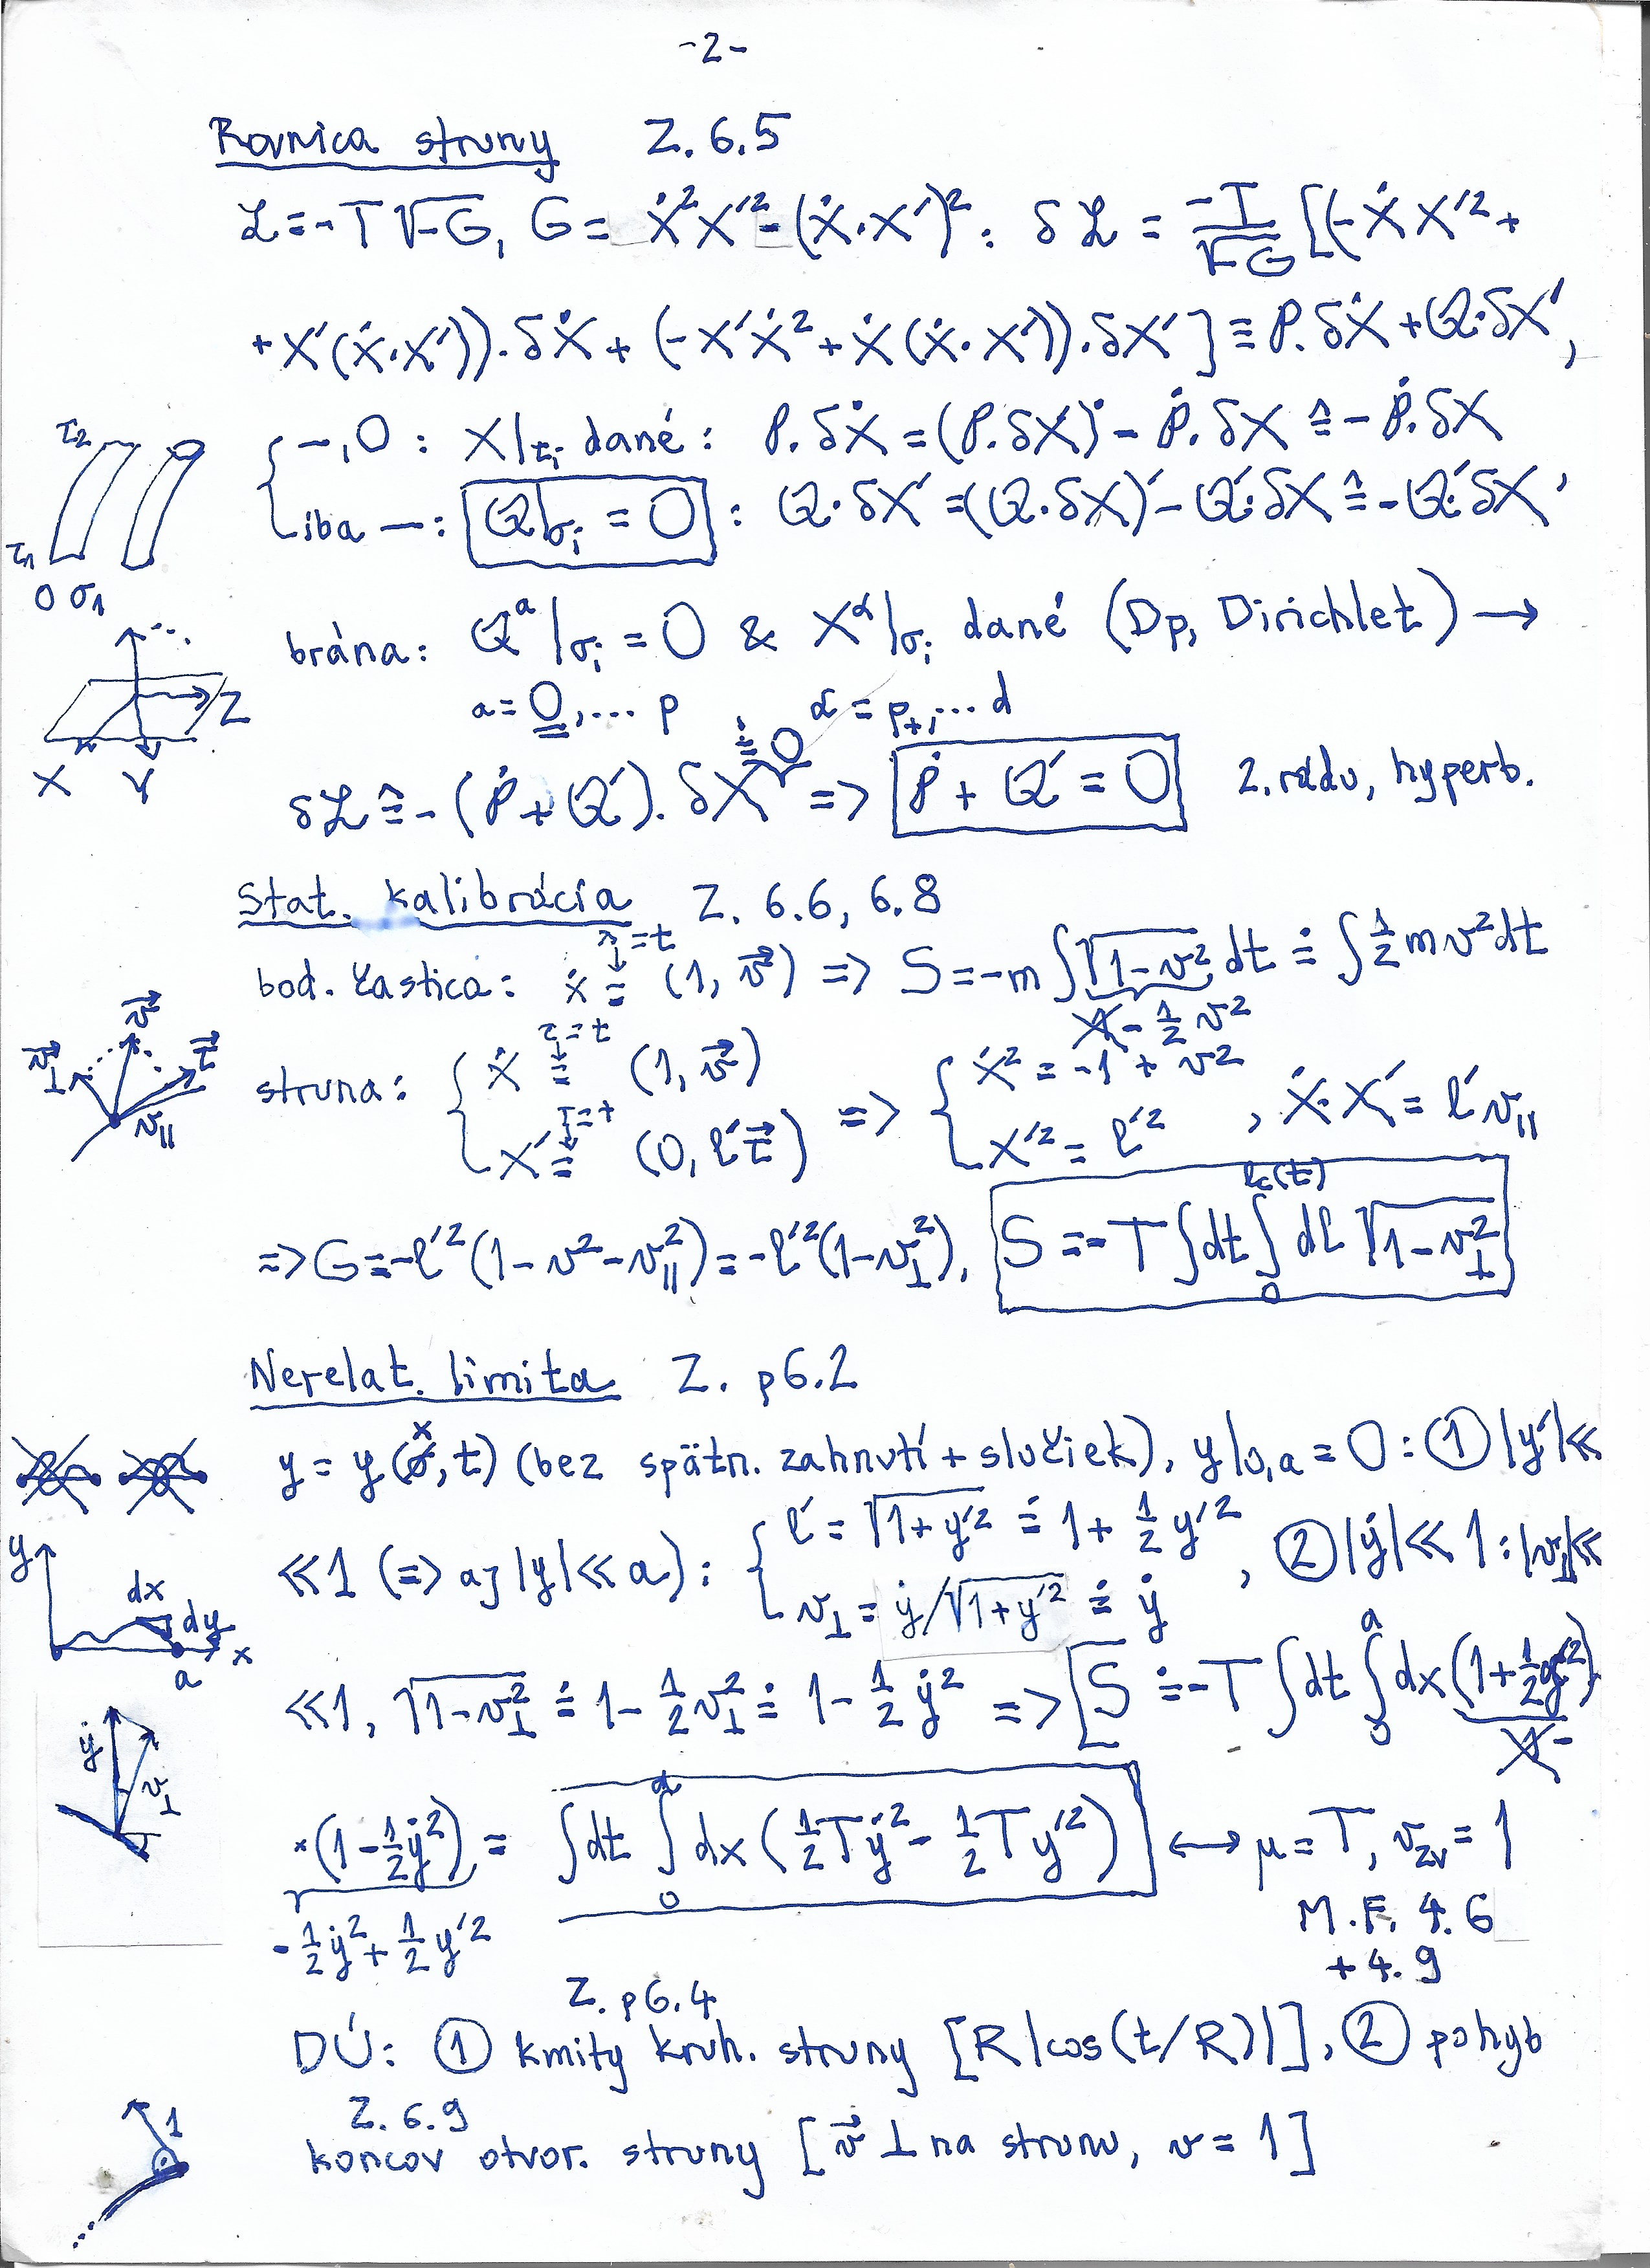 -2-
Rovnica struny Z. 6.5
ℒ = -T√-G, G = Ẋ²X'² - (Ẋ·X')²: δℒ = -T/√-G [(-Ẋ X'² +
+ X'(Ẋ·X'))·δẊ + (-X'Ẋ² + Ẋ(Ẋ·X'))·δX'] ≡ P·δẊ + Q·δX',
τ₂
{ –, O : X|τᵢ dané: P·δẊ = (P·δX)˙ - Ṗ·δX ≙ -Ṗ·δX
iba –: Q|σᵢ = 0 : Q·δX' = (Q·δX)' - Q'·δX ≙ -Q'·δX
τ₁
0 σ₁
brána: Qᵃ|σᵢ = 0 & Xᵅ|σᵢ dané (Dp, Dirichlet) →
a = 0, ... p , α = p+, ... d
X Y Z
δℒ ≙ -(Ṗ + Q')·δX ≐ 0 => Ṗ + Q' = 0 2. rádu, hyperb.
Stat. kalibrácia Z. 6.6, 6.8
τ = t
bod. častica: ẋ = (1, v⃗) => S = -m∫√1-v² dt ≐ ∫½mv²dt
1 - ½v²
v⃗⊥ v⃗ t⃗ v∥
τ = t
struna: { Ẋ = (1, v⃗) => { Ẋ² = -1 + v²
τ = t
X' = (0, l't⃗) X'² = l'² , Ẋ·X' = l'v∥
=> G = -l'²(1 - v² - v∥²) = -l'²(1 - v⊥²). S = -T∫dt∫₀^{lc(t)} dl √1-v⊥²
Nerelat. limita Z. p6.2
y = y(x, t) (bez spätn. zahnutí + slučiek), y|0,a = 0: ① |y'| ≪
≪ 1 (=> aj |y| ≪ a): { l' = √1+y'² ≐ 1 + ½y'²
v⊥ = ẏ/√1+y'² ≐ ẏ , ② |ẏ| ≪ 1: |v⊥| ≪
y dx dy a x
≪ 1, √1-v⊥² ≐ 1 - ½v⊥² ≐ 1 - ½ẏ² => S ≐ -T∫dt∫₀ᵃ dx (1 + ½y'²)
1 -
ẏ v⊥
×(1 - ½ẏ²) = ∫dt∫₀ᵃ dx (½Tẏ² - ½Ty'²) ↔ μ = T, v_zv = 1
-½ẏ² + ½y'²
M.F. 4.6
+ 4.9
Z. p6.4
DÚ: ① kmity kruh. struny [R|cos(t/R)|], ② pohyb
Z. 6.9
koncov otvor. struny [v⃗ ⊥ na strunu, v = 1]
1